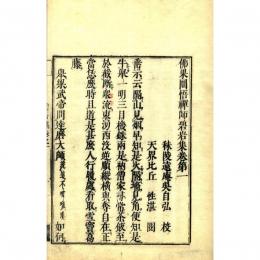 佛果圜悟禪師碧岩集卷第一
秣陵遠庵吳自弘 校
天界比丘性湛 閱
垂示云隔山見烟早知是火隔墻見角便知是
牛舉一明三目機銖兩是衲僧家尋常茶飯至
於截斷衆流東湧西沒逆順縱橫與奪自在正
當恁麼時且道是甚麼人行履處看取雪竇葛
藤
舉梁武帝問達磨大師